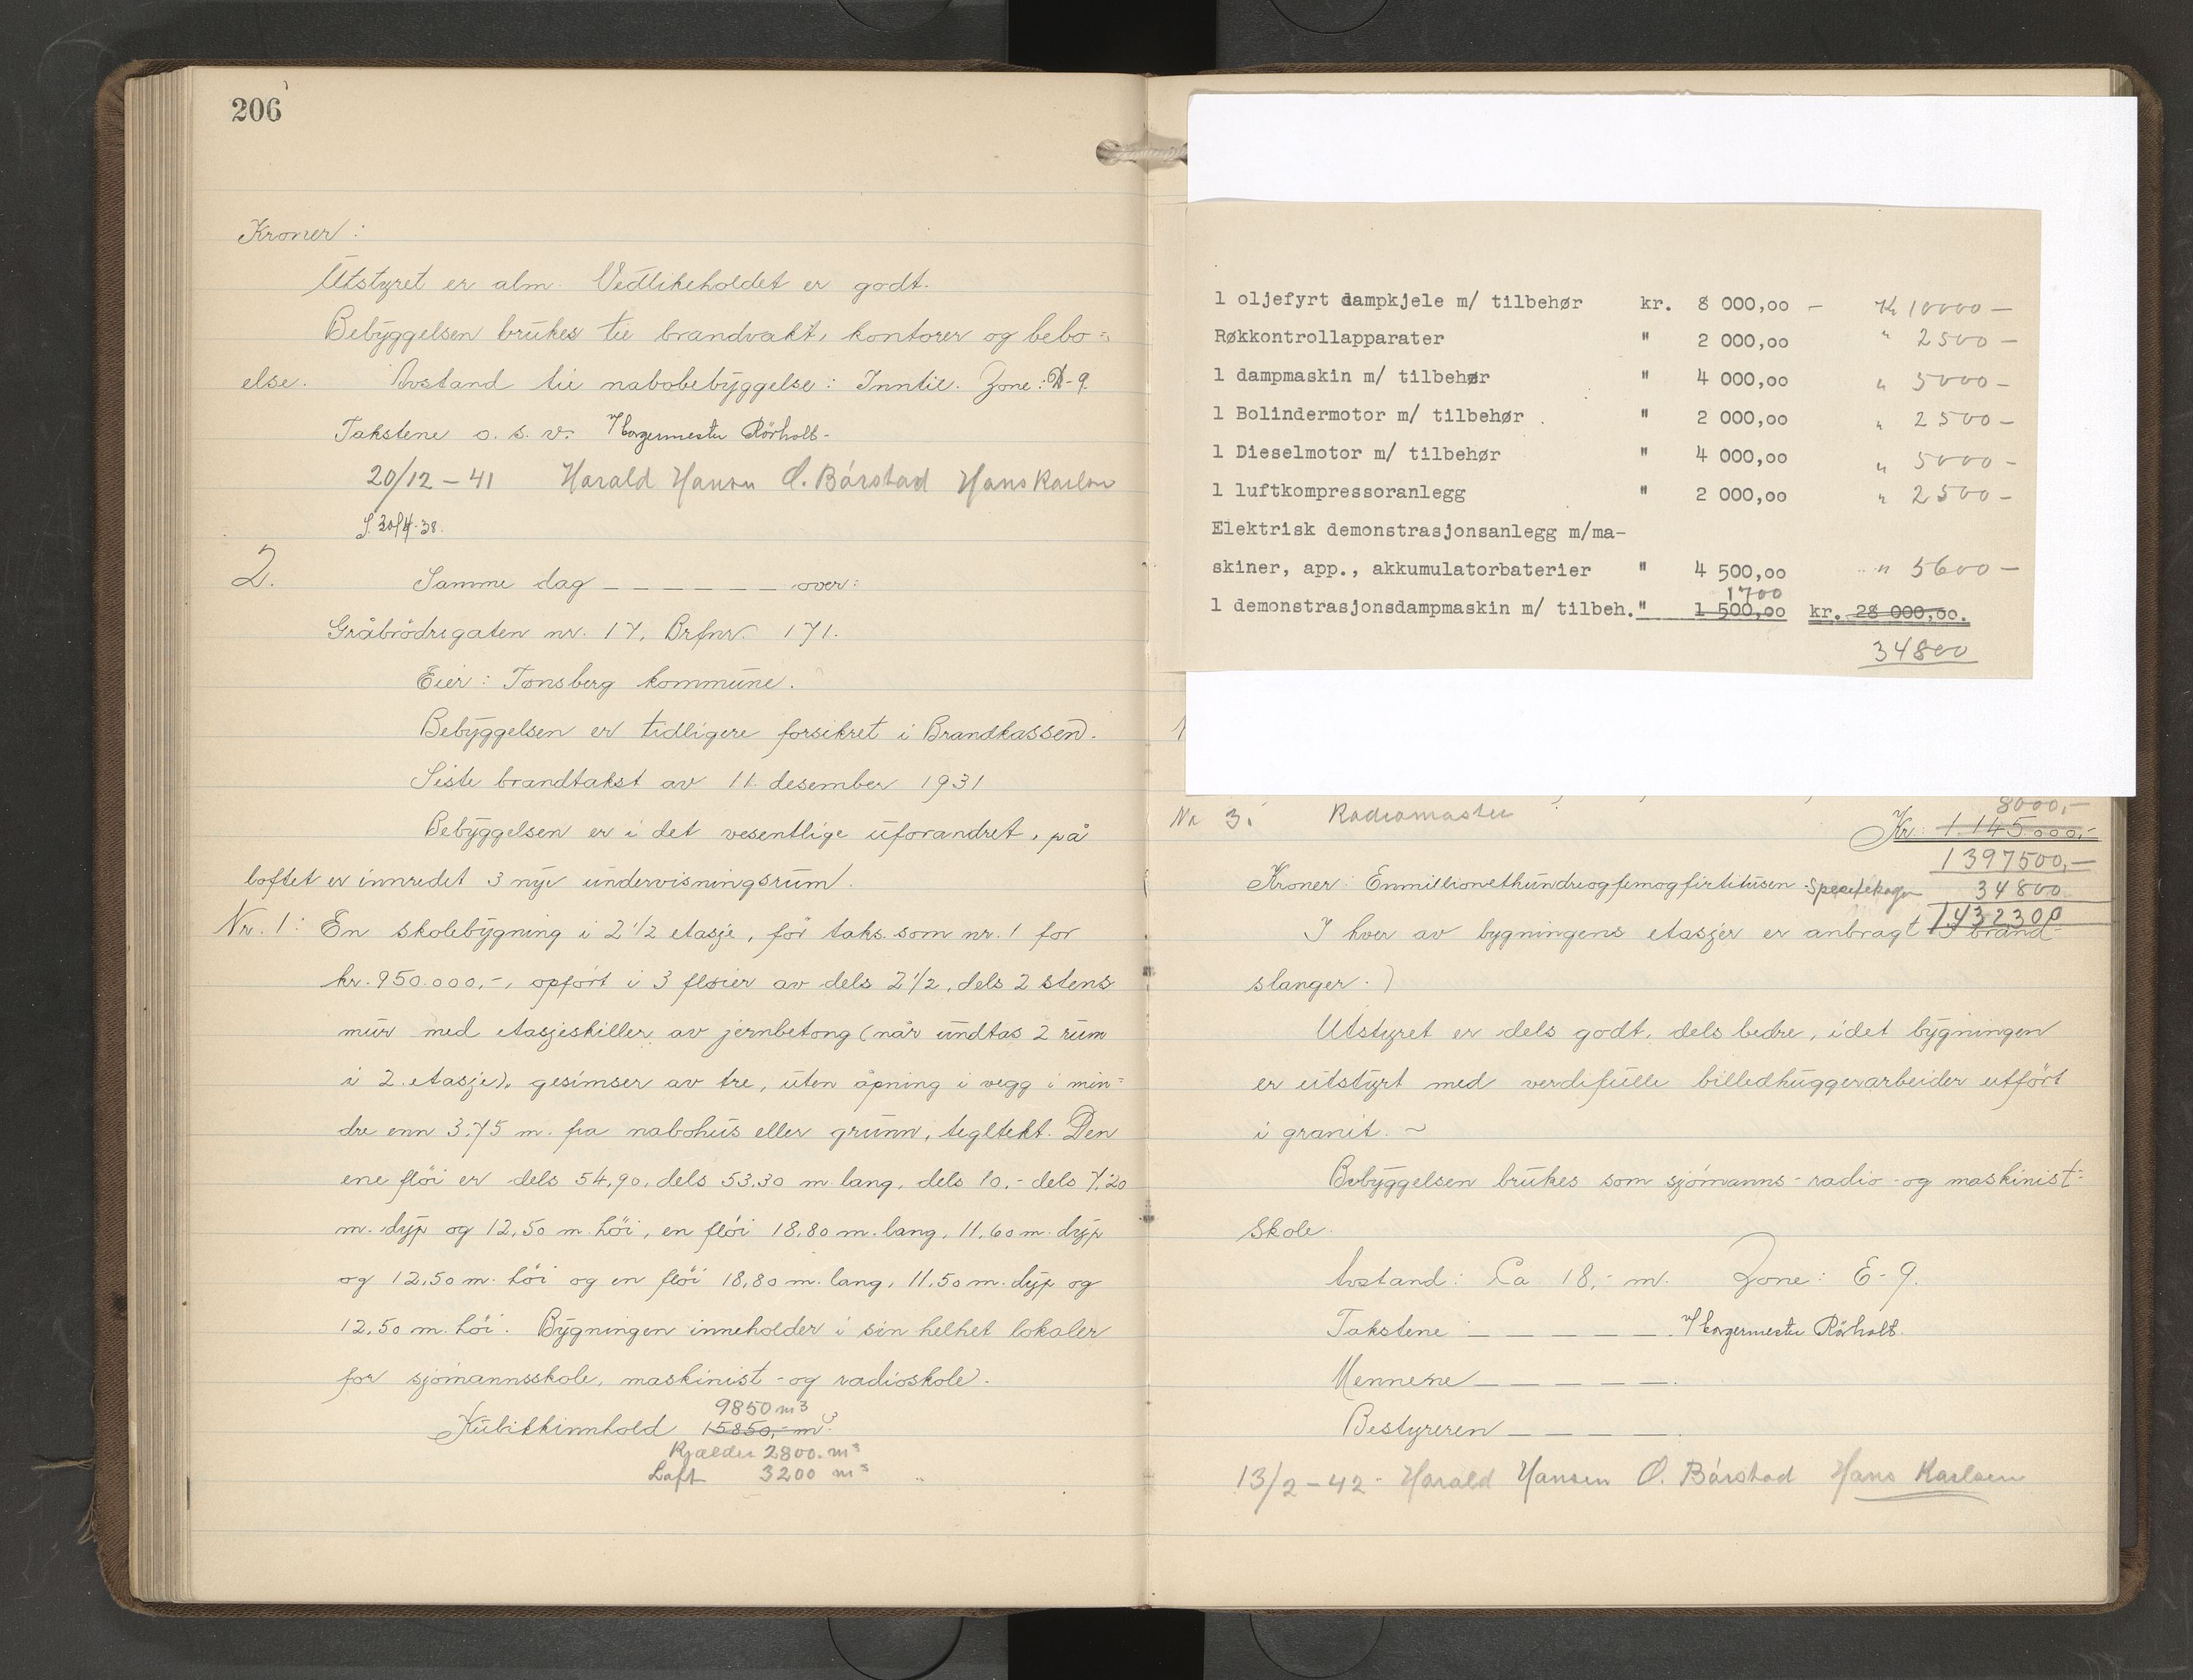 206
Kroner:
Utstyret er alm. Vedlikeholdet er godt.
Bebyggelsen brukes til brandvakt, kontorer og bebo=
else. Avstand til nabobebyggelse: Inntil. Zone: D-9.
Takstene o. s. v. Rörholt-
20/12-41 Harald Hansen O. Bårstad Hans Karlsen
S. 30/4-38.
2. Samme dag — — — — — — over:
Gråbrödregaten nr. 17, Brfnr. 171.
Eier: Tønsberg kommune.
Bebyggelsen er tidligere forsikret i Brandkassen.
Siste brandtakst av 11. desember 1931
Bebyggelsen er i det vesentlige uforandret, på
loftet er innredet 3 nye undervisningsrum.
Nr. 1: En skolebygning i 2 1/2 etasje, för taks. som nr. 1 for
kr. 950.000,-, opfört i 3 fløier av dels 2 1/2, dels 2 stens
mur med etasjeskiller av jernbetong (når undtas 2 rum
i 2. etasje), gesimser av tre, uten åpning i vegg i min=
dre enn 3.75 m. fra nabohus eller grunn, tegltekt. Den
ene flöi er dels 54,90, dels 53.30 m. lang, dels 10,- dels 7,20
m. dyp og 12,50 m. höi, en flöi 18,80 m. lang, 11,60 m. dyp
og 12,50 m. höi og en flöi 18,80 m. lang, 11,50 m. dyp og
12,50 m. höi. Bygningen inneholder i sin helhet lokaler
for sjömannsskole, maskinist- og radioskole.
9850 m3
Kubikkinnhold 15850,- m3.
Kjælder 2800. m3
Loft 3200 m3
1 oljefyrt dampkjele m/ tilbehør kr. 8 000,oo - Kr 10000 -
Røkkontrollapparater " 2 000,oo " 2500 -
1 dampmaskin m/ tilbehør " 4 000,oo " 5000 -
1 Bolindermotor m/ tilbehør " 2 000,oo " 2500 -
1 Dieselmotor m/ tilbehør " 4 000,oo " 5000 -
1 luftkompressoranlegg " 2 000,oo " 2500 -
Elektrisk demonstrasjonsanlegg m/ma-
skiner, app., akkumulatorbaterier " 4 500,oo " 5600 -
1700
1 demonstrasjonsdampmaskin m/ tilbeh." 1 500,oo kr. 28 000,oo.
34800
Nr 3. Radiomaster 8000,-
Kr. 1.145.000,-
1397500,-
Kroner: Enmillionethundreogfemogfirtitusen 34800
1432300
I hver av bygningens etasjer er anbragt brand-
slanger.)
Utstyret er dels godt, dels bedre, idet bygningen
er utstyrt med verdifulle billedhuggerarbeider utfört
i granit. ~
Bebyggelsen brukes som sjömanns- radio- og maskinist=
skole.
Avstand: Ca 18,- m. Zone: E-9.
Takstene — — — — — Rörholt.
Mennene — — — — —.
Bestyreren — — — —.
13/2-42 - Harald Hansen O. Bårstad Hans Karlsen